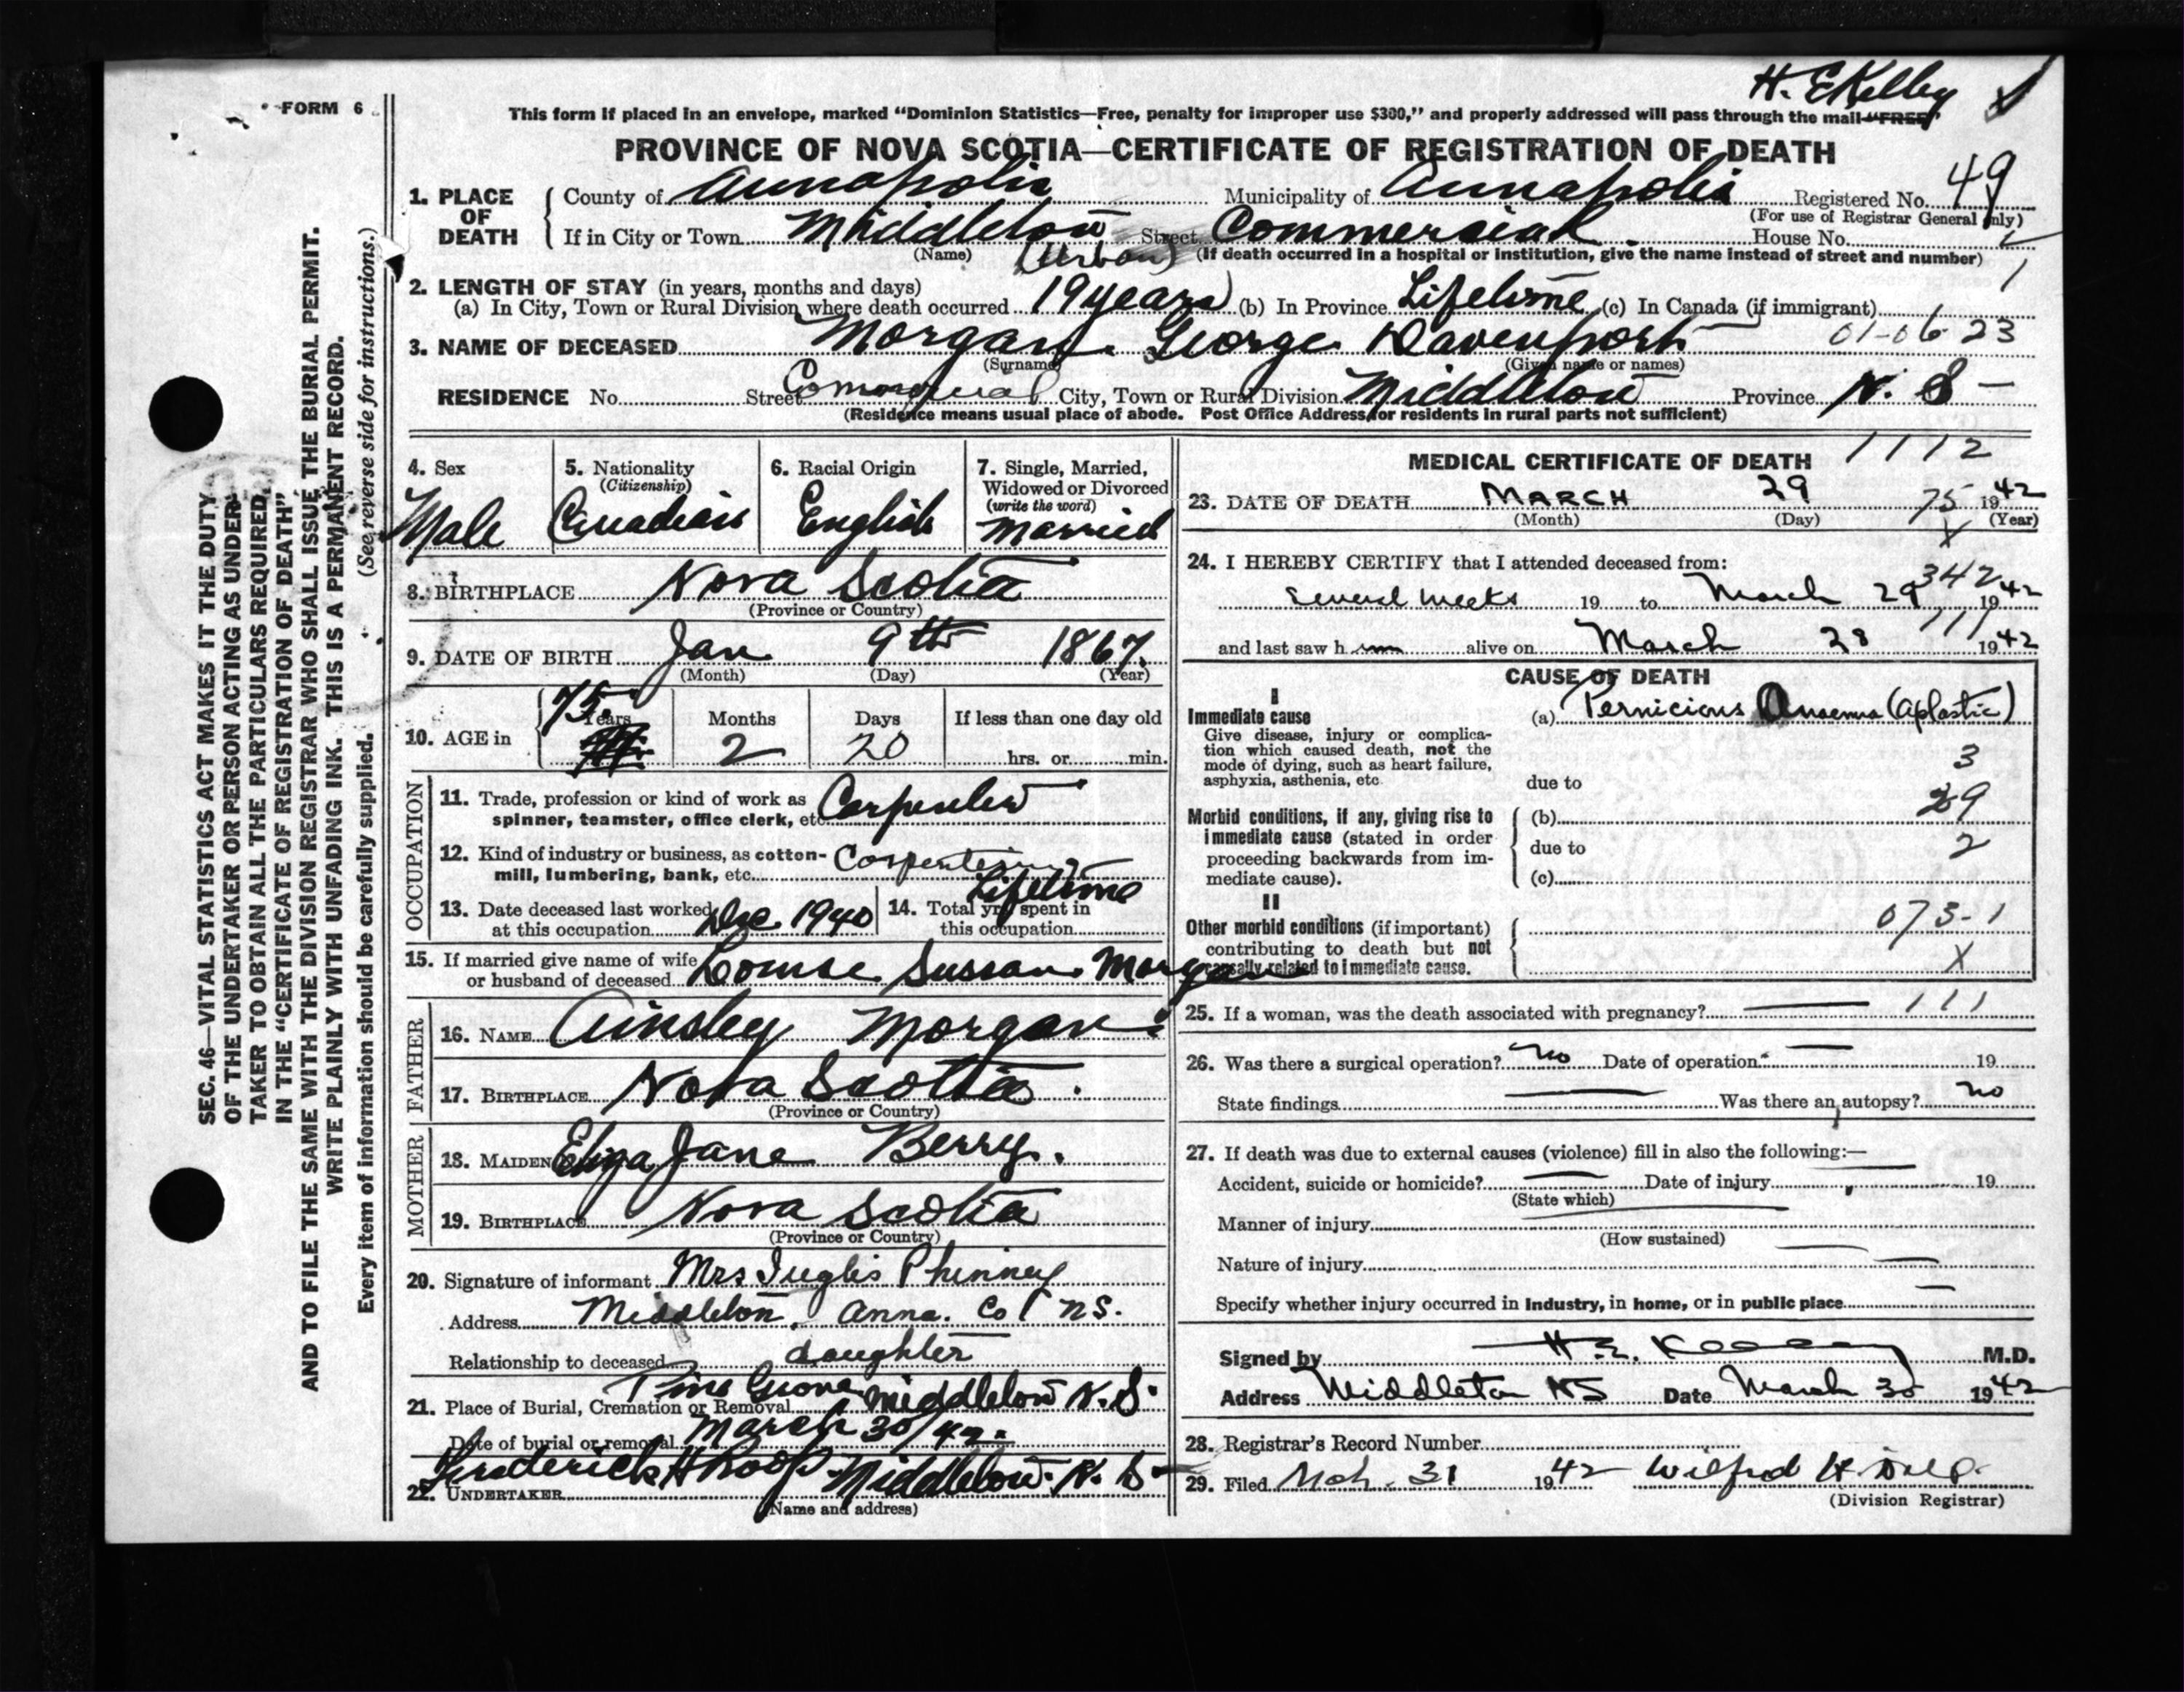 H. E Kelley
FORM 6
This form if placed in an envelope, marked “Dominion Statistics—Free, penalty for improper use $300,” and properly addressed will pass through the mail “FREE”
PROVINCE OF NOVA SCOTIA—CERTIFICATE OF REGISTRATION OF DEATH
1. PLACE OF DEATH County of Annapolis Municipality of Annapolis Registered No. 49
(For use of Registrar General only)
If in City or Town Middleton Street Commercial House No.
(Name) (Urban) (If death occurred in a hospital or institution, give the name instead of street and number)
2. LENGTH OF STAY (in years, months and days) 1
(a) In City, Town or Rural Division where death occurred 19 years (b) In Province Lifetime (c) In Canada (if immigrant)
3. NAME OF DECEASED Morgan George Davenport 01-06-23
(Surname) (Given name or names)
RESIDENCE No. Street Commercial City, Town or Rural Division Middleton Province N. S
(Residence means usual place of abode. Post Office Address for residents in rural parts not sufficient)
4. Sex Male
5. Nationality (Citizenship) Canadian
6. Racial Origin English
7. Single, Married, Widowed or Divorced (write the word) Married
8. BIRTHPLACE Nova Scotia
(Province or Country)
9. DATE OF BIRTH Jan 9th 1867.
(Month) (Day) (Year)
10. AGE in 75 Years 2 Months 20 Days If less than one day old hrs. or min.
OCCUPATION
11. Trade, profession or kind of work as spinner, teamster, office clerk, etc. Carpenter
12. Kind of industry or business, as cotton-mill, lumbering, bank, etc. Carpentering
13. Date deceased last worked at this occupation Dec. 1940
14. Total yrs. spent in this occupation Lifetime
15. If married give name of wife or husband of deceased Louise Sussan Morgan
FATHER
16. NAME Ainsley Morgan
17. BIRTHPLACE Nova Scotia
(Province or Country)
MOTHER
18. MAIDEN Eliza Jane Berry.
19. BIRTHPLACE Nova Scotia
(Province or Country)
20. Signature of informant Mrs Inglis Phinney
Address Middleton, Anna. Co NS.
Relationship to deceased daughter
21. Place of Burial, Cremation or Removal Pine Grove Middleton N.S.
Date of burial or removal March 30/42.
22. UNDERTAKER Frederick H Roop Middleton. N. S
(Name and address)
MEDICAL CERTIFICATE OF DEATH 1112
23. DATE OF DEATH MARCH 29 75 1942
(Month) (Day) (Year)
X
24. I HEREBY CERTIFY that I attended deceased from:
342
Several weeks 19 to March 29 1942
111
and last saw him alive on March 28 1942
CAUSE OF DEATH
I
Immediate cause (a) Pernicious Anaemia (Aplastic)
Give disease, injury or complication which caused death, not the mode of dying, such as heart failure, asphyxia, asthenia, etc.
3
due to
Morbid conditions, if any, giving rise to immediate cause (stated in order proceeding backwards from immediate cause).
(b) 29
due to 2
(c)
II
Other morbid conditions (if important) contributing to death but not causally related to immediate cause.
073-1
X
25. If a woman, was the death associated with pregnancy? — 111
26. Was there a surgical operation? no Date of operation — 19
State findings — Was there an autopsy? no
27. If death was due to external causes (violence) fill in also the following:—
Accident, suicide or homicide? — Date of injury — 19
(State which)
Manner of injury —
(How sustained)
Nature of injury —
Specify whether injury occurred in Industry, in home, or in public place —
Signed by H. E. Kelley M.D.
Address Middleton NS Date March 30 1942
28. Registrar's Record Number
29. Filed Mch. 31 1942 Wilfred H
(Division Registrar)
SEC. 46—VITAL STATISTICS ACT MAKES IT THE DUTY
OF THE UNDERTAKER OR PERSON ACTING AS UNDER-
TAKER TO OBTAIN ALL THE PARTICULARS REQUIRED
IN THE “CERTIFICATE OF REGISTRATION OF DEATH”
AND TO FILE THE SAME WITH THE DIVISION REGISTRAR WHO SHALL ISSUE THE BURIAL PERMIT.
WRITE PLAINLY WITH UNFADING INK. THIS IS A PERMANENT RECORD.
Every item of information should be carefully supplied. (See reverse side for instructions.)